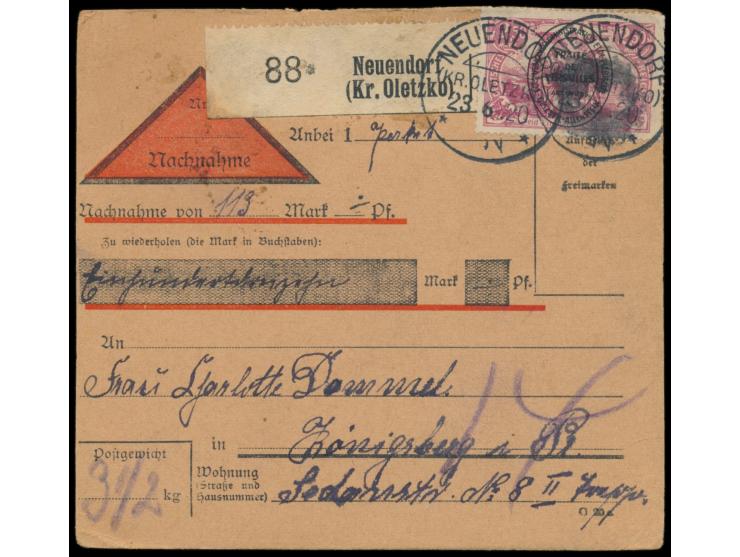 88
Neuendorf
(Kr. Oletzko)
NEUENDORF
(KR. OLETZKO)
23 6 20
* N *
TRAITÉ
DE
VERSAILLES
Nachnahme
Anbei 1
der
Freimarken
Nachnahme von 113 Mark Pf.
Zu wiederholen (die Mark in Buchstaben):
Einhundertdreizehn Mark Pf.
An
Frau Charlotte Dommel.
in Königsberg i Pr.
Postgewicht
3 1/2 kg
Wohnung
(Straße und
Hausnummer)
Sedanstr. No 8 II Treppe.